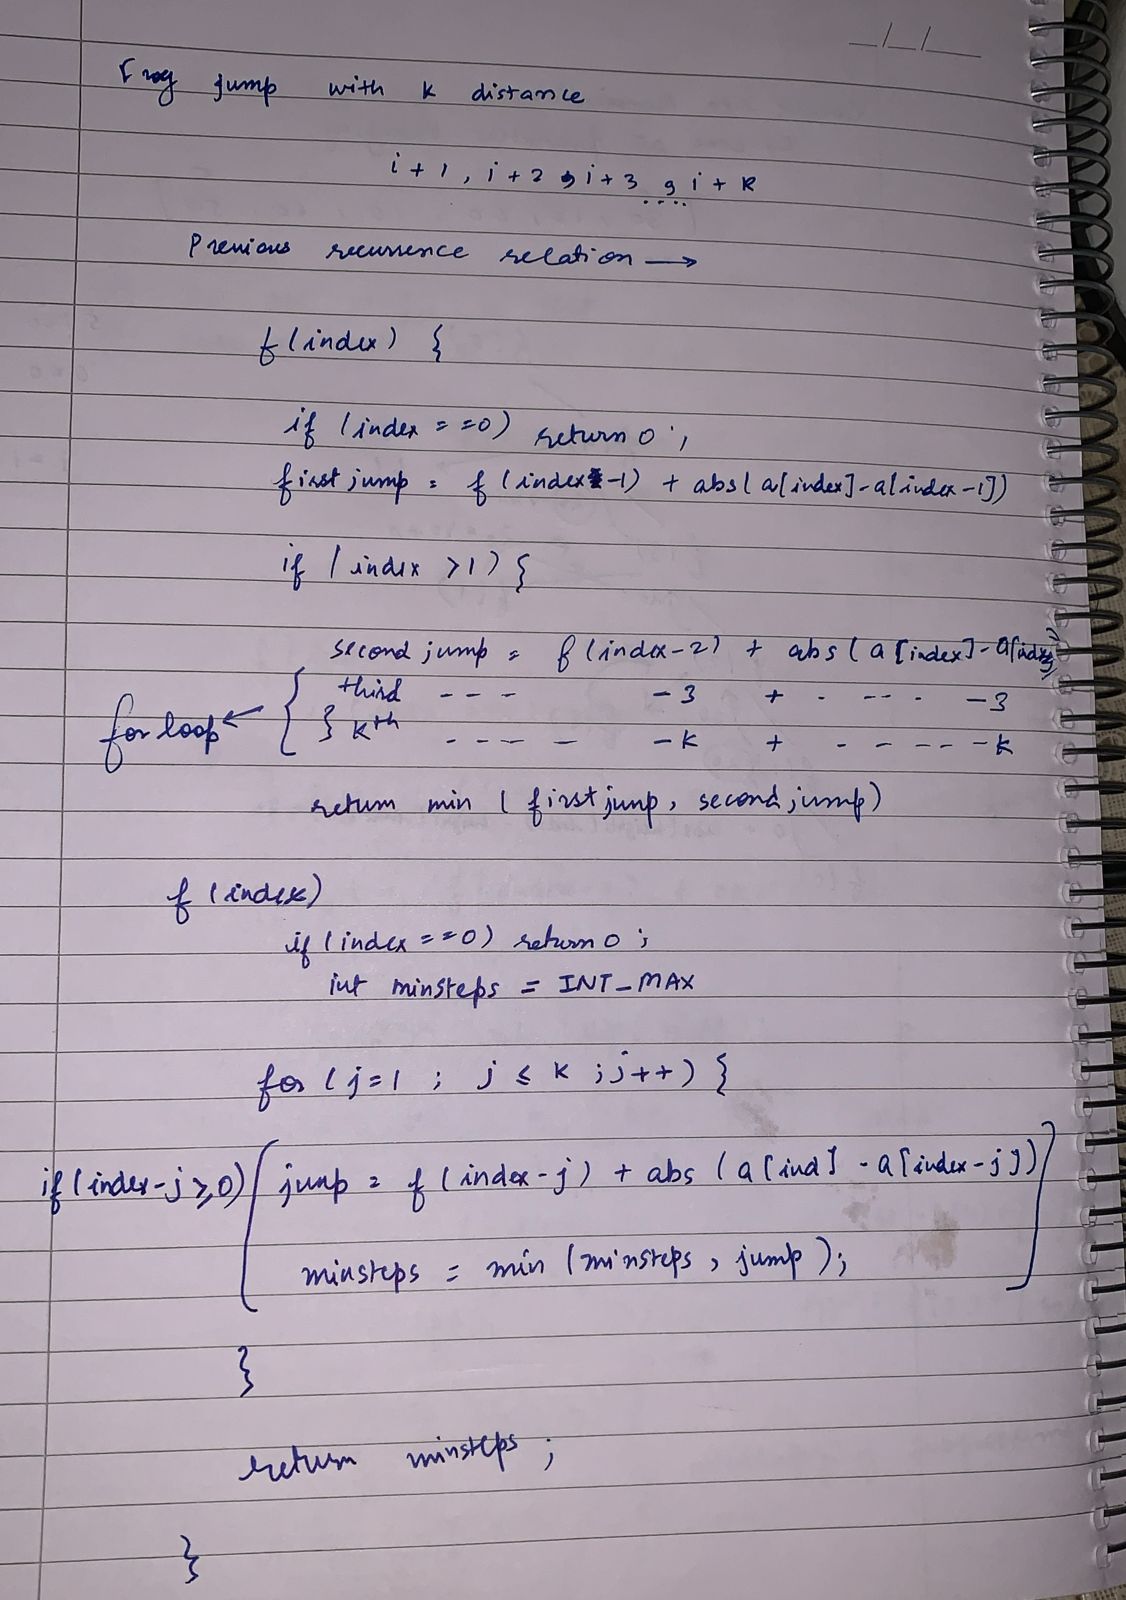 _/_/__
Frog jump with k distance
i+1, i+2, i+3, .... i+k
Previous recurrence relation →
f(index) {
if (index == 0) return 0;
first jump = f(index-1) + abs(a[index]-a[index-1])
if (index >1) {
second jump = f(index-2) + abs(a[index]-a[index
third --- -3 + . --- . -3
for loop ← { } kth ---- - -k + . - ---- -k
return min (first jump, second jump)
f(index)
if (index == 0) return 0;
int minsteps = INT_MAX
for (j=1 ; j ≤ k ; j++) {
if (index-j ≥ 0) [ jump = f(index-j) + abs (a[ind] - a[index-j])
minsteps = min (minsteps, jump); ]
}
return minsteps;
}